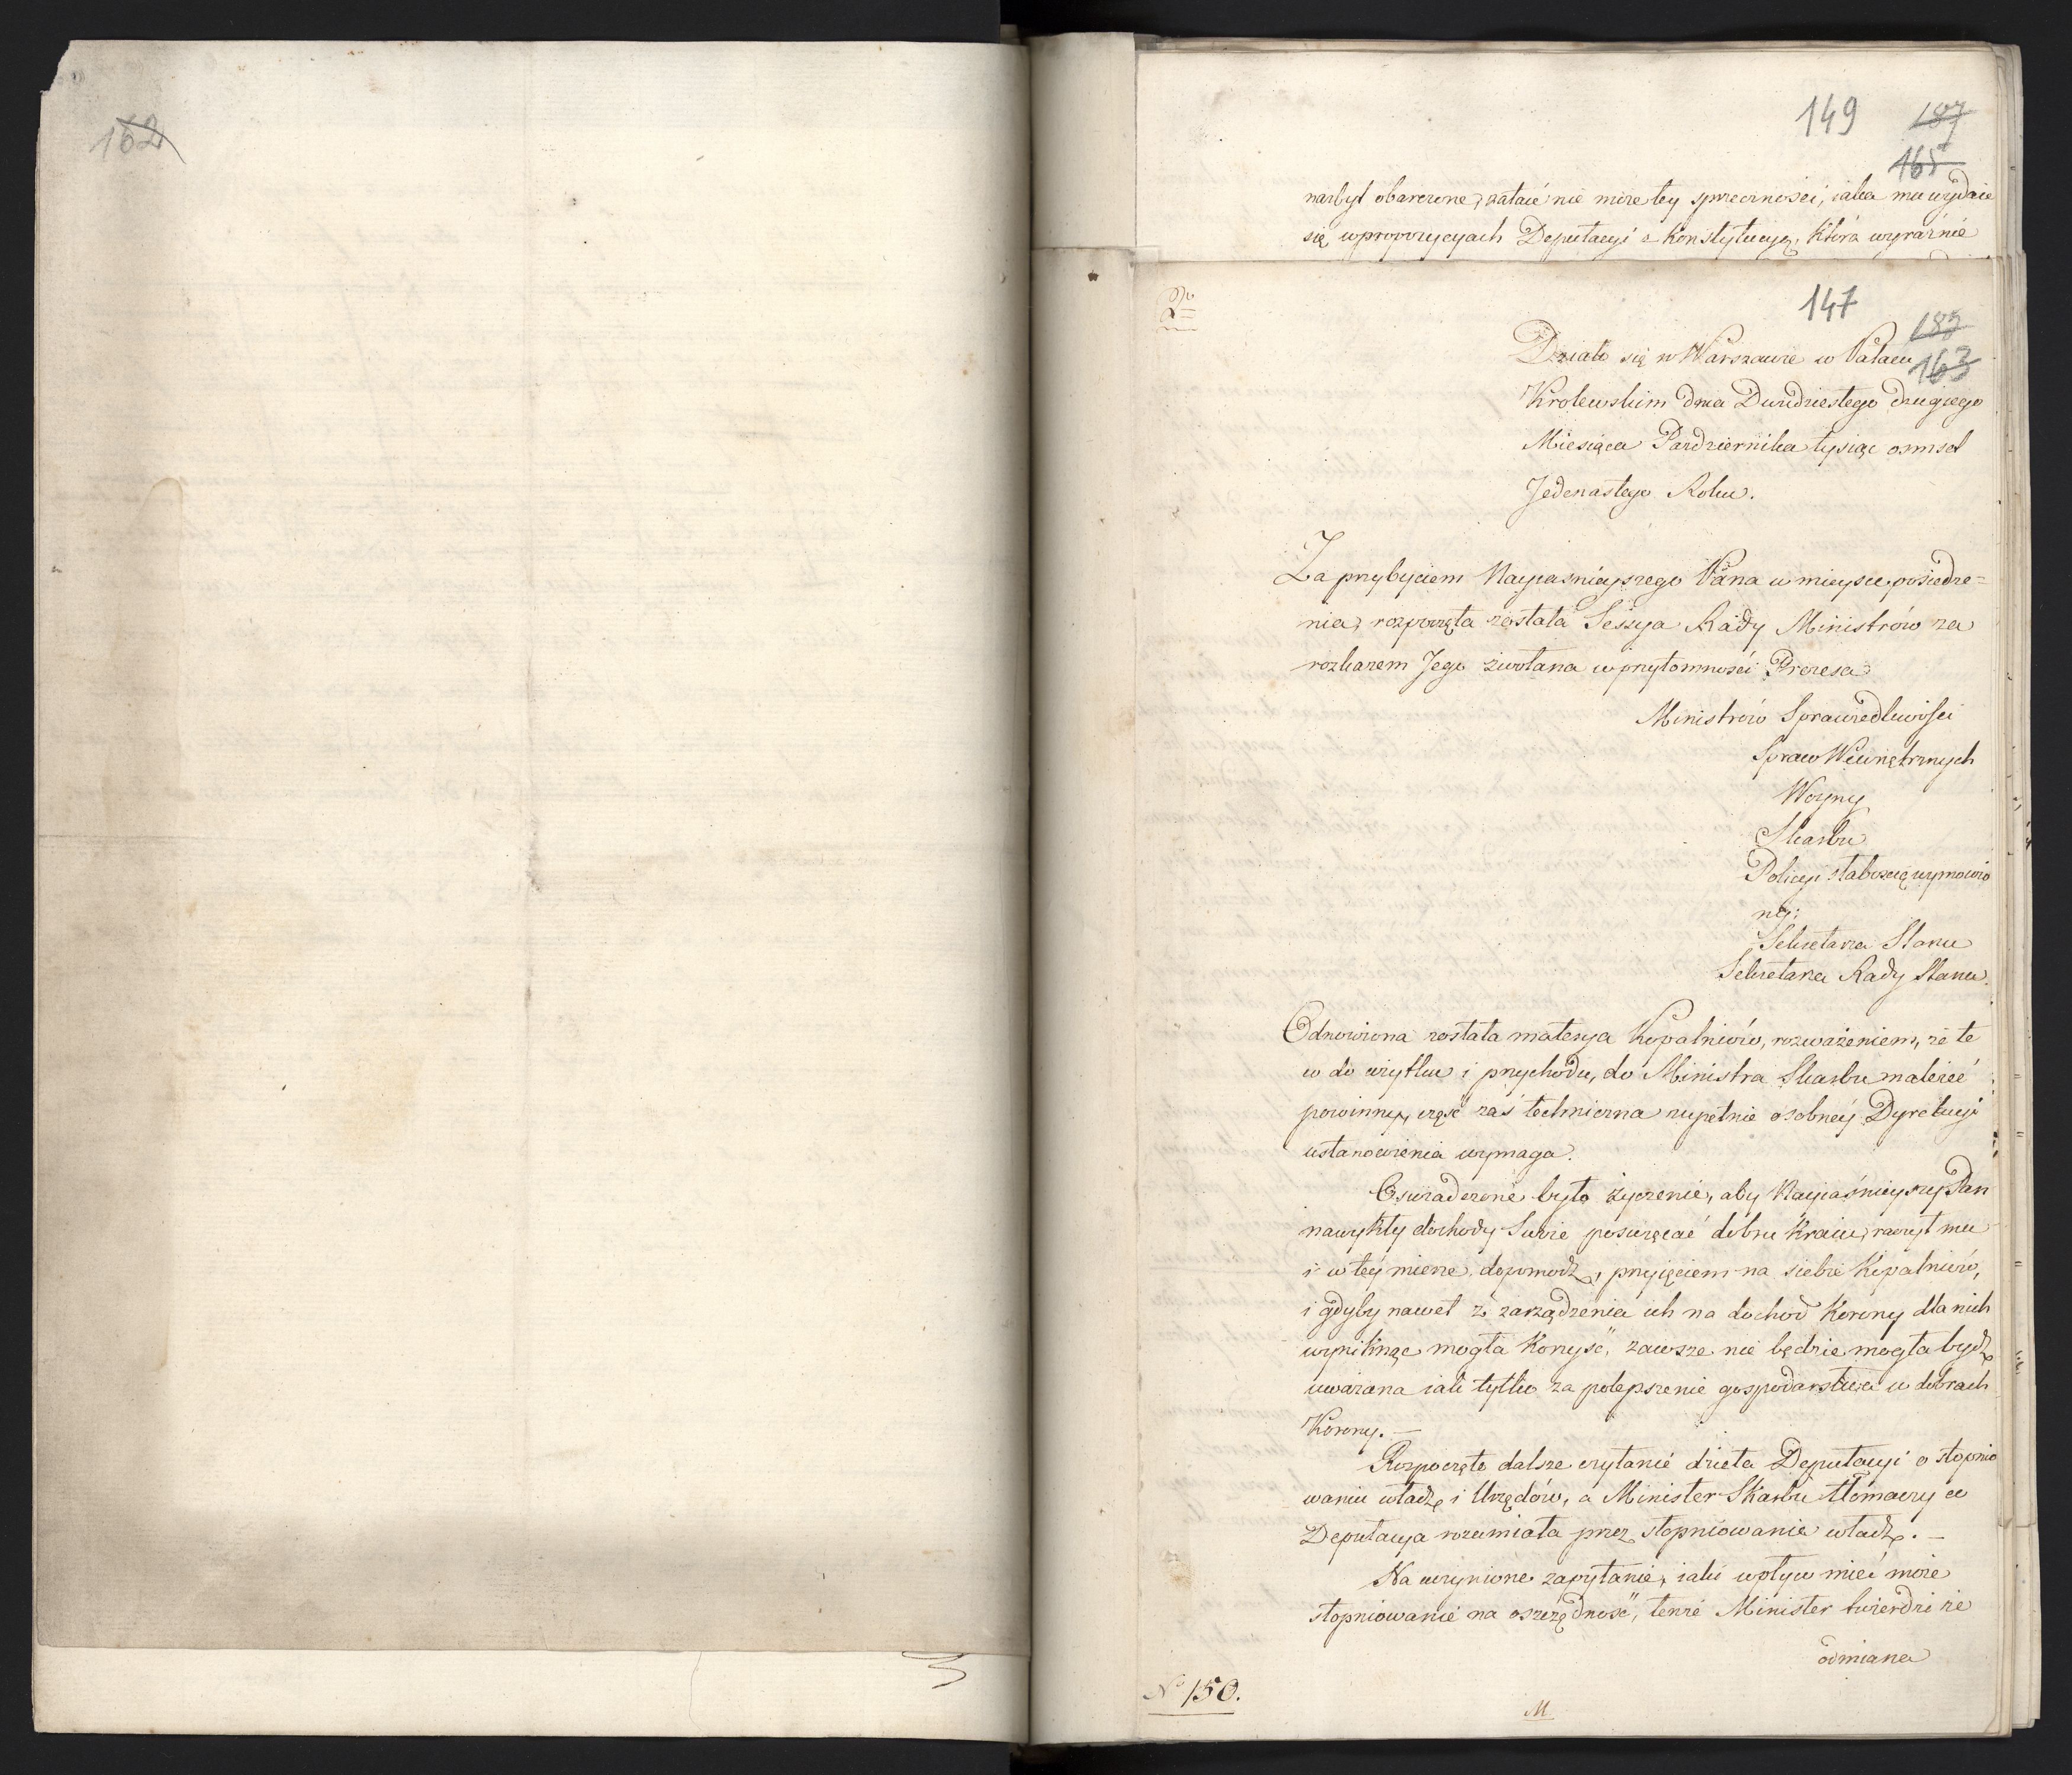 162
149 187
165
nazbyt obarczone, zataić nie może tey sprzeczności, iaka mu wydaie
się w propozycyach Deputacyi z Konstytucyą, która wyraźnie
2do
147
185
163
Działo się w Warszawie w Pałacu
Krolewskim dnia Dwudziestego drugiego
Miesiąca Pazdziernika tysiąc osmset
Jedenastego Roku.
Za przybyciem Nayiasnieyszego Pana w mieysce posiedze-
nia, rozpoczęta została Sessya Rady Ministrów za
rozkazem Jego zwołana w przytomności Prezesa
Ministrów Sprawiedliwości
Spraw Wewnętrznych
Woyny
Skarbu
Policyi słabością wymowio
ney:
Sekretarza Stanu
Sekretarza Rady Stanu.
Odnowiona została materya Kopalniów, rozważeniem, że te
w do użytku i przychodu, do Ministra Skarbu należeć
powinny, część zaś techniczna zupełnie osobney Dyrekcyi
ustanowienia wymaga.
Oswiadczone było życzenie, aby Nayiaśnieyszy Pan
nawykły dochody Swoie poswięcać dobru Kraiu, raczył mu
i w tey mierze dopomodz, przyięciem na siebie Kopalniów,
i gdyby nawet z zarządzenia ich na dochod Korony dla nich
wyniknąc mogła Korzyść, zawsze nie będzie mogła bydz
uważana iak tylko za polepszenie gospodarstwa w dobrach
Korony. —
Rozpoczęte dalsze czytanié dzieła Deputacyi o stopnio
waniu władz i Urzędów, a Minister Skarbu tłómaczy co
Deputacya rozumiała przez stopniowanie władz. —
Na uczynione zapytanie, iaki wpływ mieć może
stopniowanié na oszczędność, tenże Minister twierdzi że
odmiana
No 150.
M